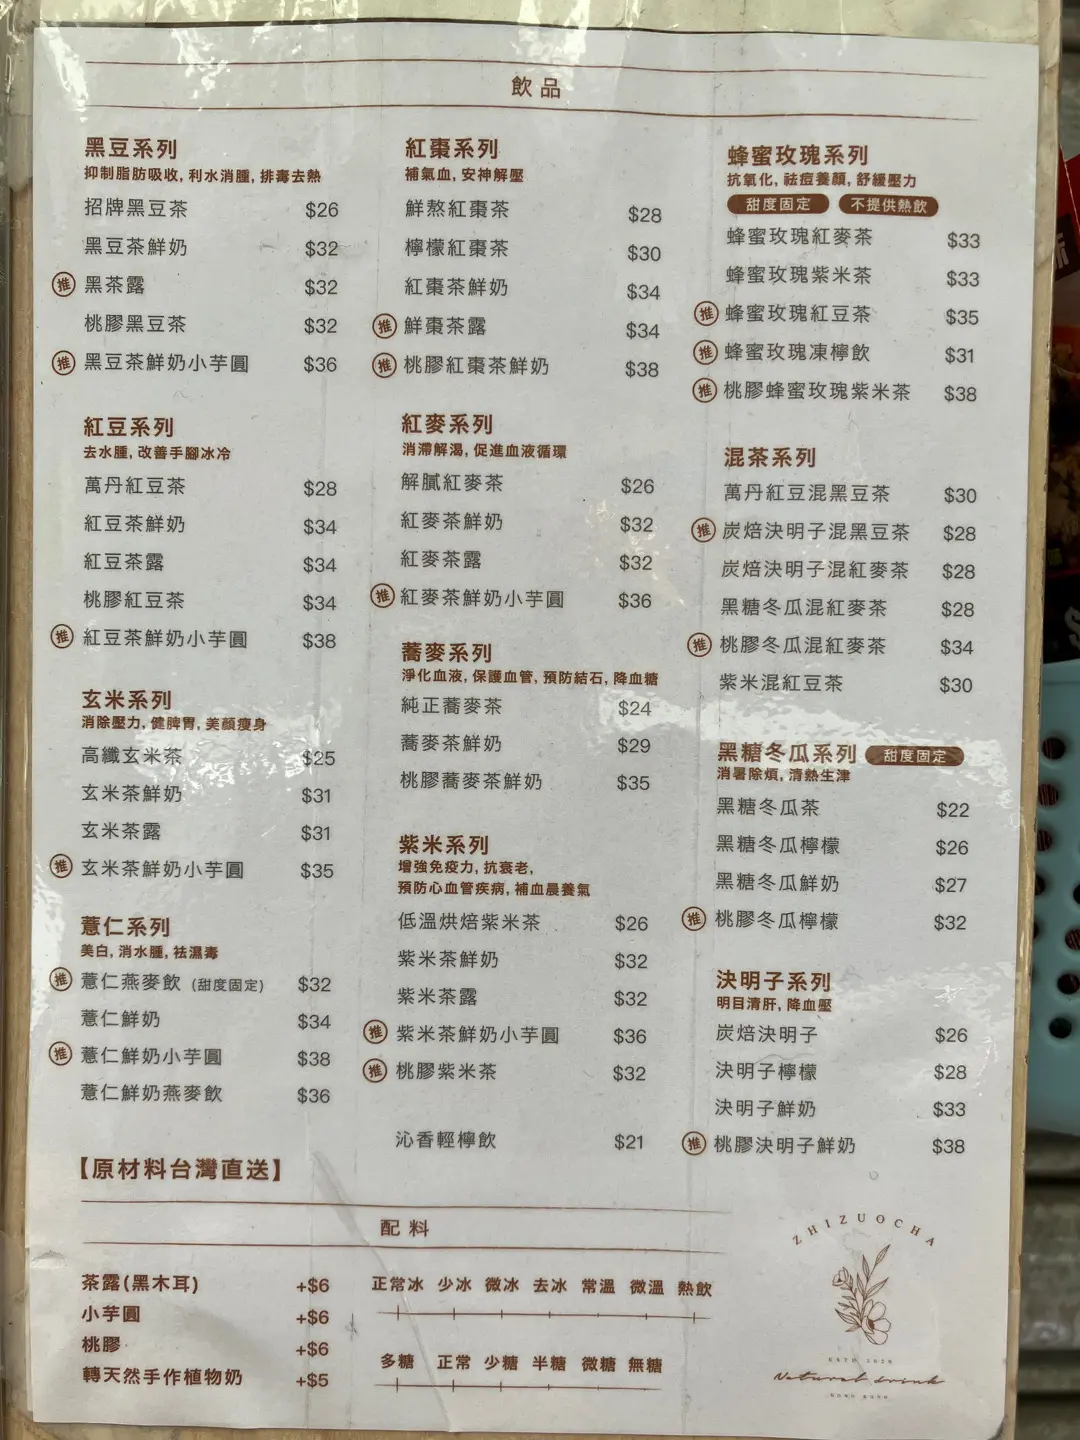 飲品
黑豆系列
抑制脂肪吸收, 利水消腫, 排毒去熱
招牌黑豆茶 $26
黑豆茶鮮奶 $32
推 黑茶露 $32
桃膠黑豆茶 $32
推 黑豆茶鮮奶小芋圓 $36
紅豆系列
去水腫, 改善手腳冰冷
萬丹紅豆茶 $28
紅豆茶鮮奶 $34
紅豆茶露 $34
桃膠紅豆茶 $34
推 紅豆茶鮮奶小芋圓 $38
玄米系列
消除壓力, 健脾胃, 美顏瘦身
高纖玄米茶 $25
玄米茶鮮奶 $31
玄米茶露 $31
推 玄米茶鮮奶小芋圓 $35
薏仁系列
美白, 消水腫, 祛濕毒
推 薏仁燕麥飲 (甜度固定) $32
薏仁鮮奶 $34
推 薏仁鮮奶小芋圓 $38
薏仁鮮奶燕麥飲 $36
【原材料台灣直送】
紅棗系列
補氣血, 安神解壓
鮮熬紅棗茶 $28
檸檬紅棗茶 $30
紅棗茶鮮奶 $34
推 鮮棗茶露 $34
推 桃膠紅棗茶鮮奶 $38
紅麥系列
消滯解渴, 促進血液循環
解膩紅麥茶 $26
紅麥茶鮮奶 $32
紅麥茶露 $32
推 紅麥茶鮮奶小芋圓 $36
蕎麥系列
淨化血液, 保護血管, 預防結石, 降血糖
純正蕎麥茶 $24
蕎麥茶鮮奶 $29
桃膠蕎麥茶鮮奶 $35
紫米系列
增強免疫力, 抗衰老,
預防心血管疾病, 補血晨養氣
低溫烘焙紫米茶 $26
紫米茶鮮奶 $32
紫米茶露 $32
推 紫米茶鮮奶小芋圓 $36
推 桃膠紫米茶 $32
沁香輕檸飲 $21
蜂蜜玫瑰系列
抗氧化, 祛痘養顏, 舒緩壓力
甜度固定 不提供熱飲
蜂蜜玫瑰紅麥茶 $33
蜂蜜玫瑰紫米茶 $33
推 蜂蜜玫瑰紅豆茶 $35
推 蜂蜜玫瑰凍檸飲 $31
推 桃膠蜂蜜玫瑰紫米茶 $38
混茶系列
萬丹紅豆混黑豆茶 $30
推 炭焙決明子混黑豆茶 $28
炭焙決明子混紅麥茶 $28
黑糖冬瓜混紅麥茶 $28
推 桃膠冬瓜混紅麥茶 $34
紫米混紅豆茶 $30
黑糖冬瓜系列 甜度固定
消暑除煩, 清熱生津
黑糖冬瓜茶 $22
黑糖冬瓜檸檬 $26
黑糖冬瓜鮮奶 $27
推 桃膠冬瓜檸檬 $32
決明子系列
明目清肝, 降血壓
炭焙決明子 $26
決明子檸檬 $28
決明子鮮奶 $33
推 桃膠決明子鮮奶 $38
配料
茶露(黑木耳) +$6
小芋圓 +$6
桃膠 +$6
轉天然手作植物奶 +$5
正常冰 少冰 微冰 去冰 常溫 微溫 熱飲
多糖 正常 少糖 半糖 微糖 無糖
ZHIZUOCHA
Natural drink
HONG KONG